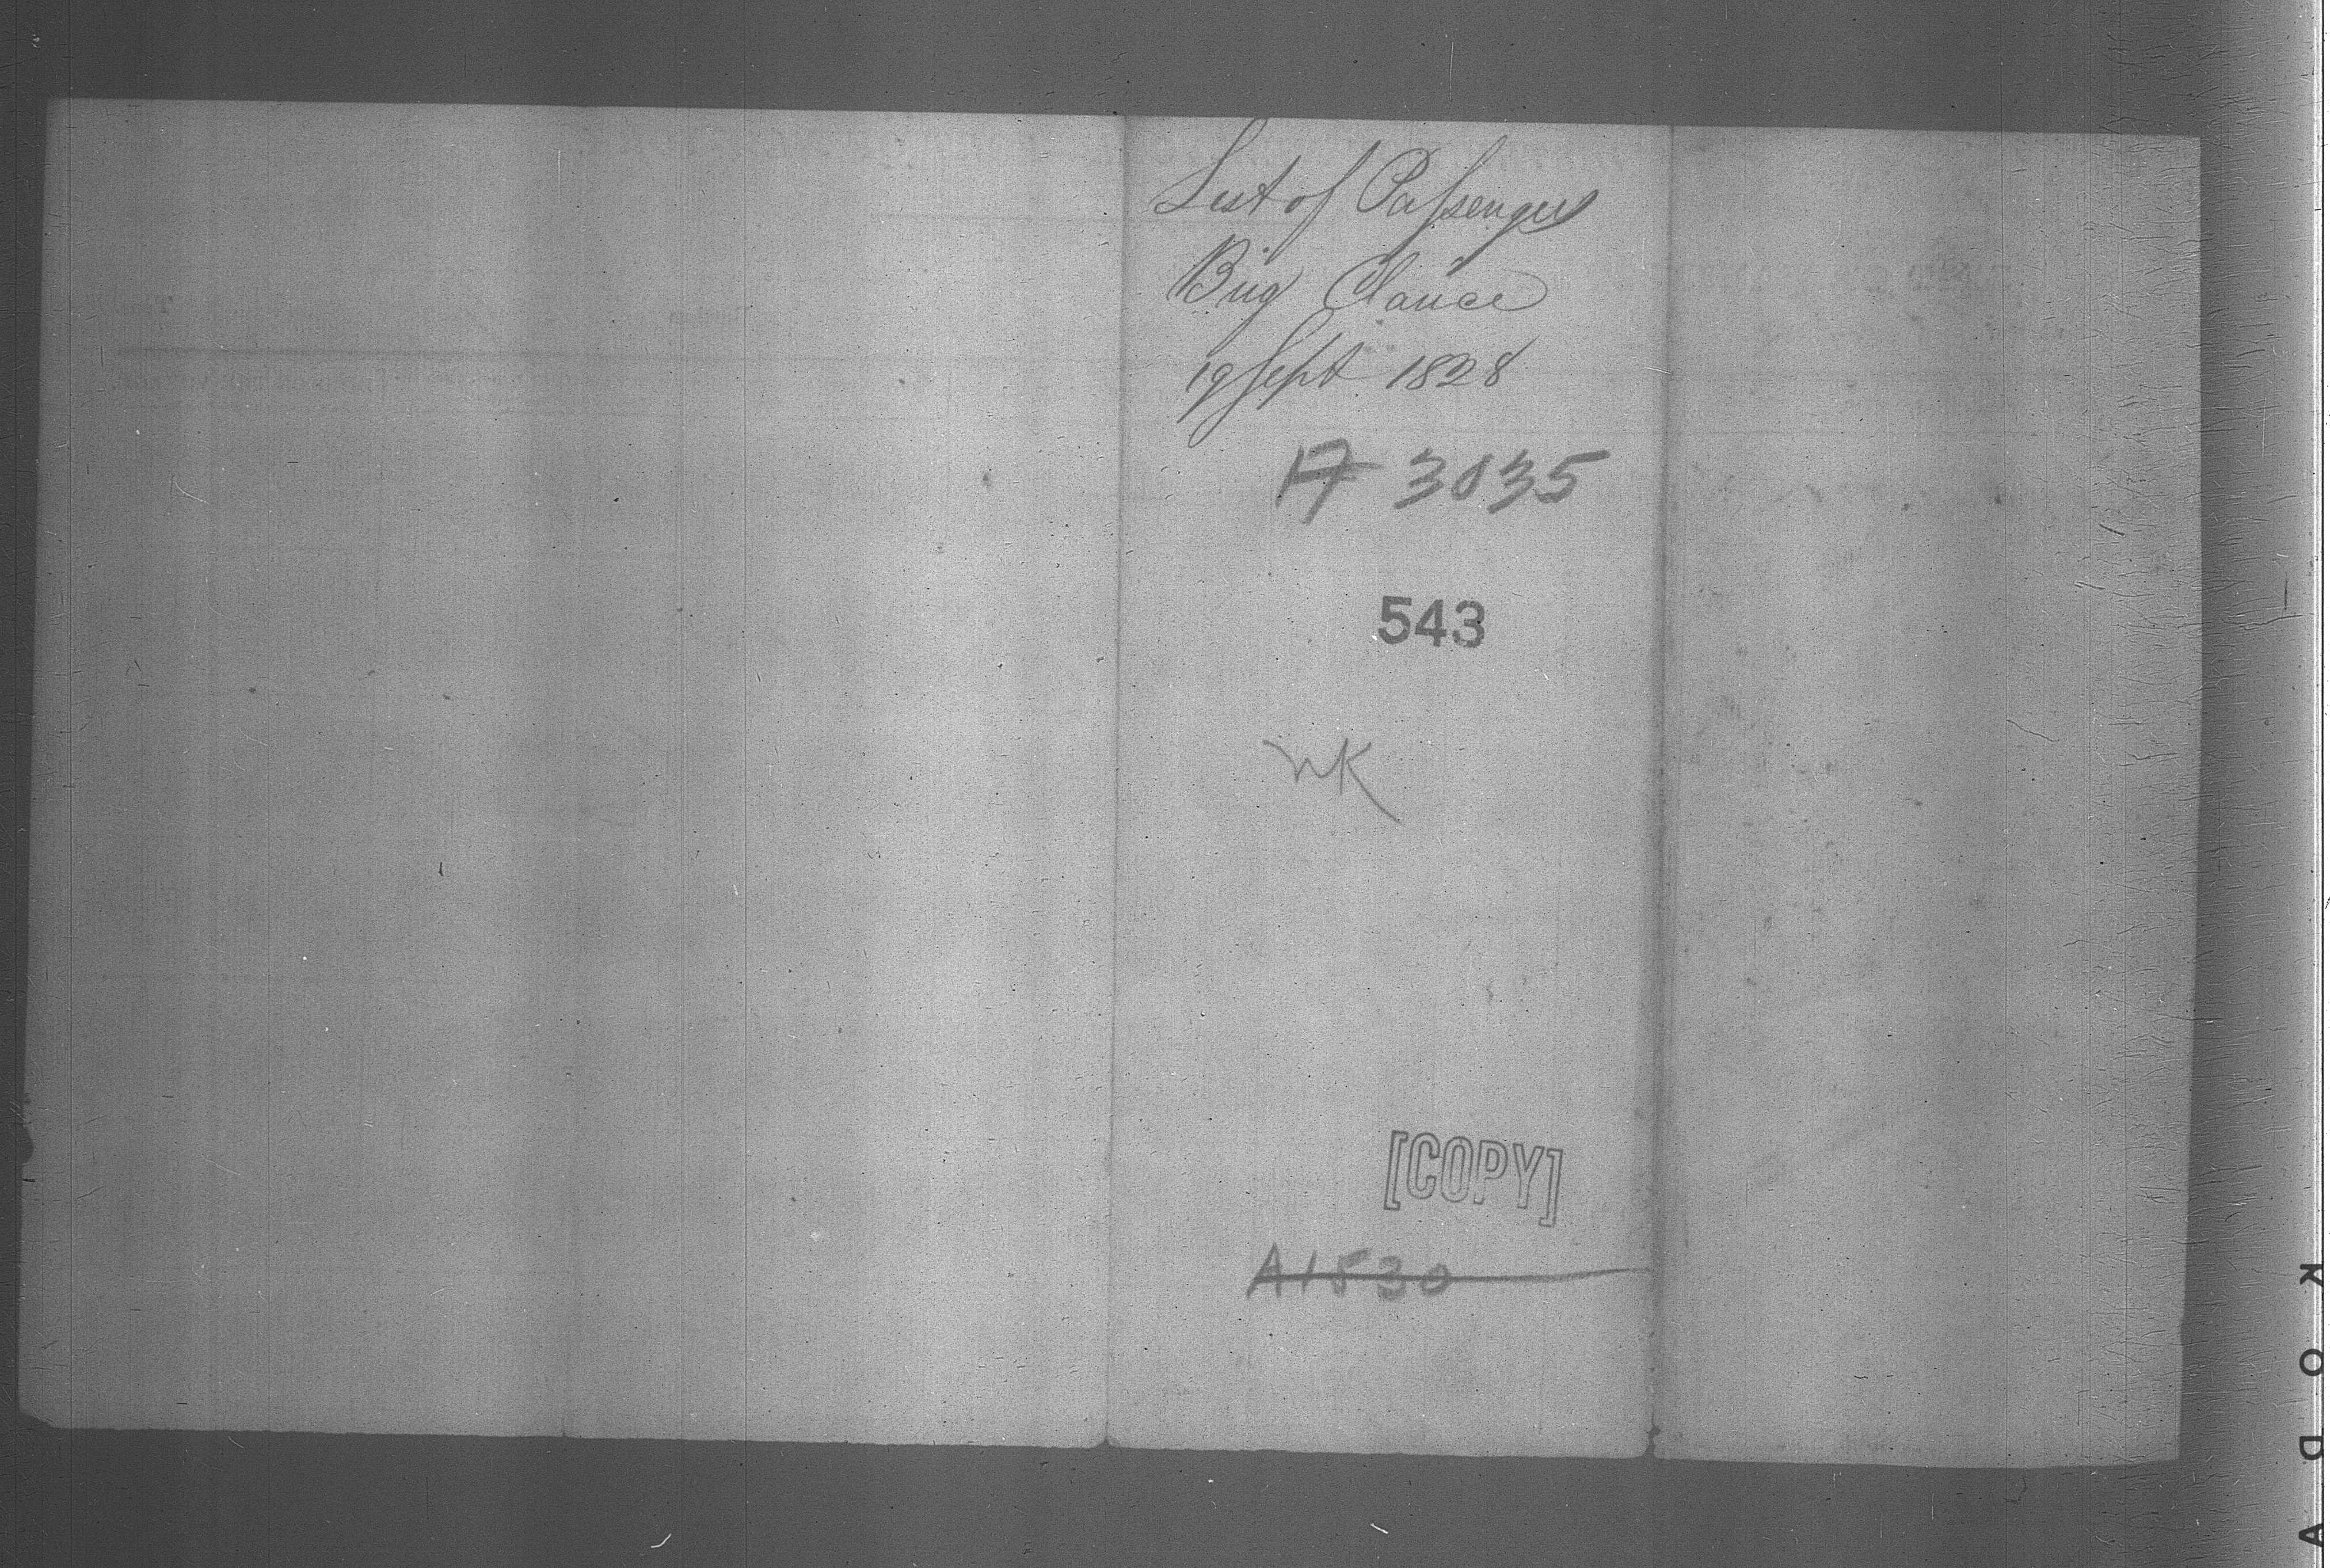 List of Passengers
Brig Clarice
19 Sept 1828
A 3035
543
WK
[COPY]
A1530
KODA